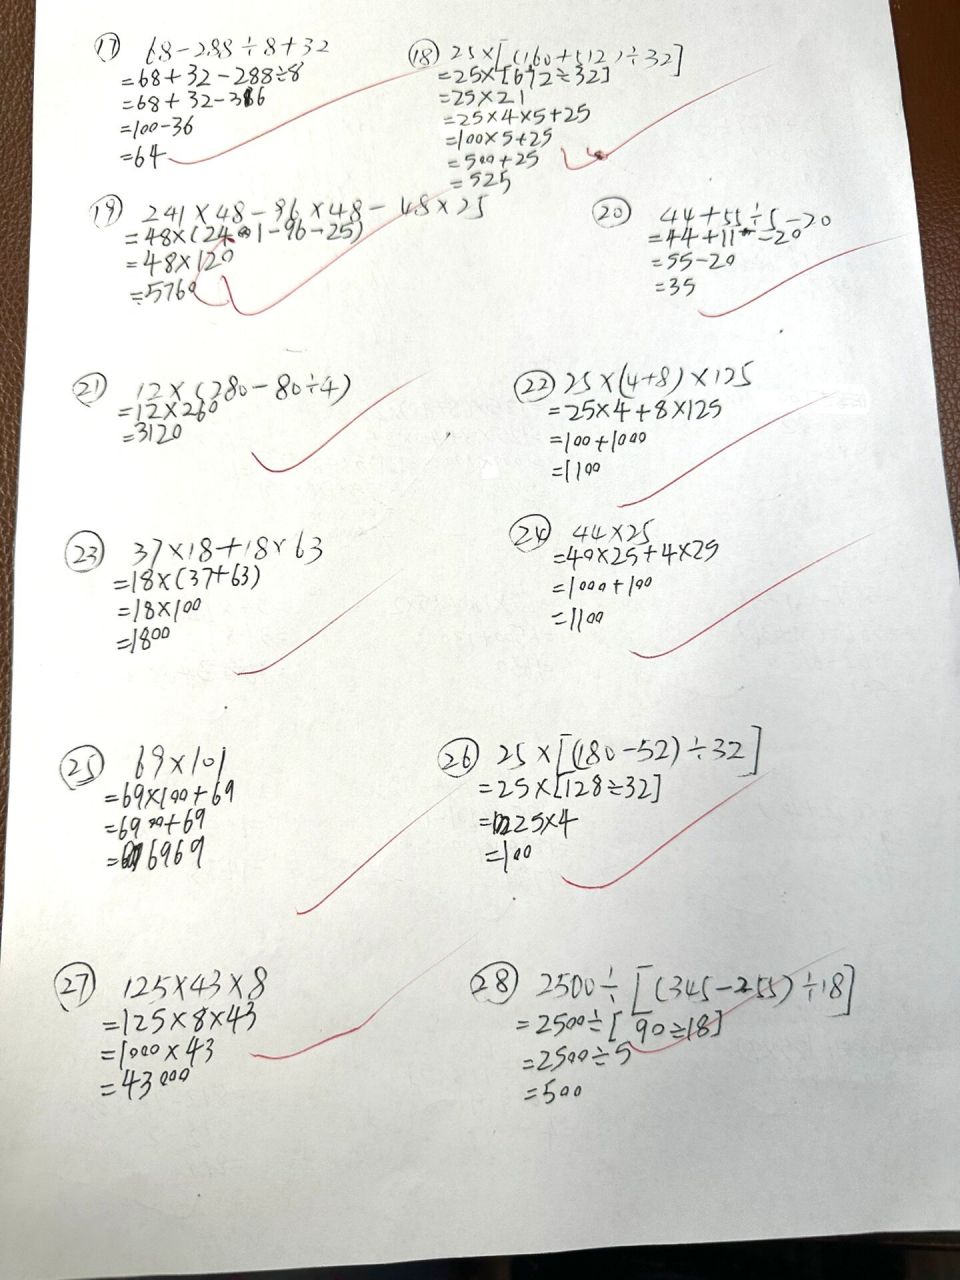 ⑰ 68-288÷8+32
=68+32-288÷8
=68+32-36
=100-36
=64
⑱ 25×[(160+512)÷32]
=25×[672÷32]
=25×21
=25×4×5+25
=100×5+25
=500+25
=525
⑲ 241×48-96×48-48×25
=48×(241-96-25)
=48×120
=5760
⑳ 44+55÷5-20
=44+11-20
=55-20
=35
㉑ 12×(280-80÷4)
=12×260
=3120
㉒ 25×(4+8)×125
=25×4+8×125
=100+1000
=1100
㉓ 37×18+18×63
=18×(37+63)
=18×100
=1800
㉔ 44×25
=40×25+4×25
=1000+100
=1100
㉕ 69×101
=69×100+69
=6900+69
=6969
㉖ 25×[(180-52)÷32]
=25×[128÷32]
=25×4
=100
㉗ 125×43×8
=125×8×43
=1000×43
=43000
㉘ 2500÷[(345-255)÷18]
=2500÷[90÷18]
=2500÷5
=500